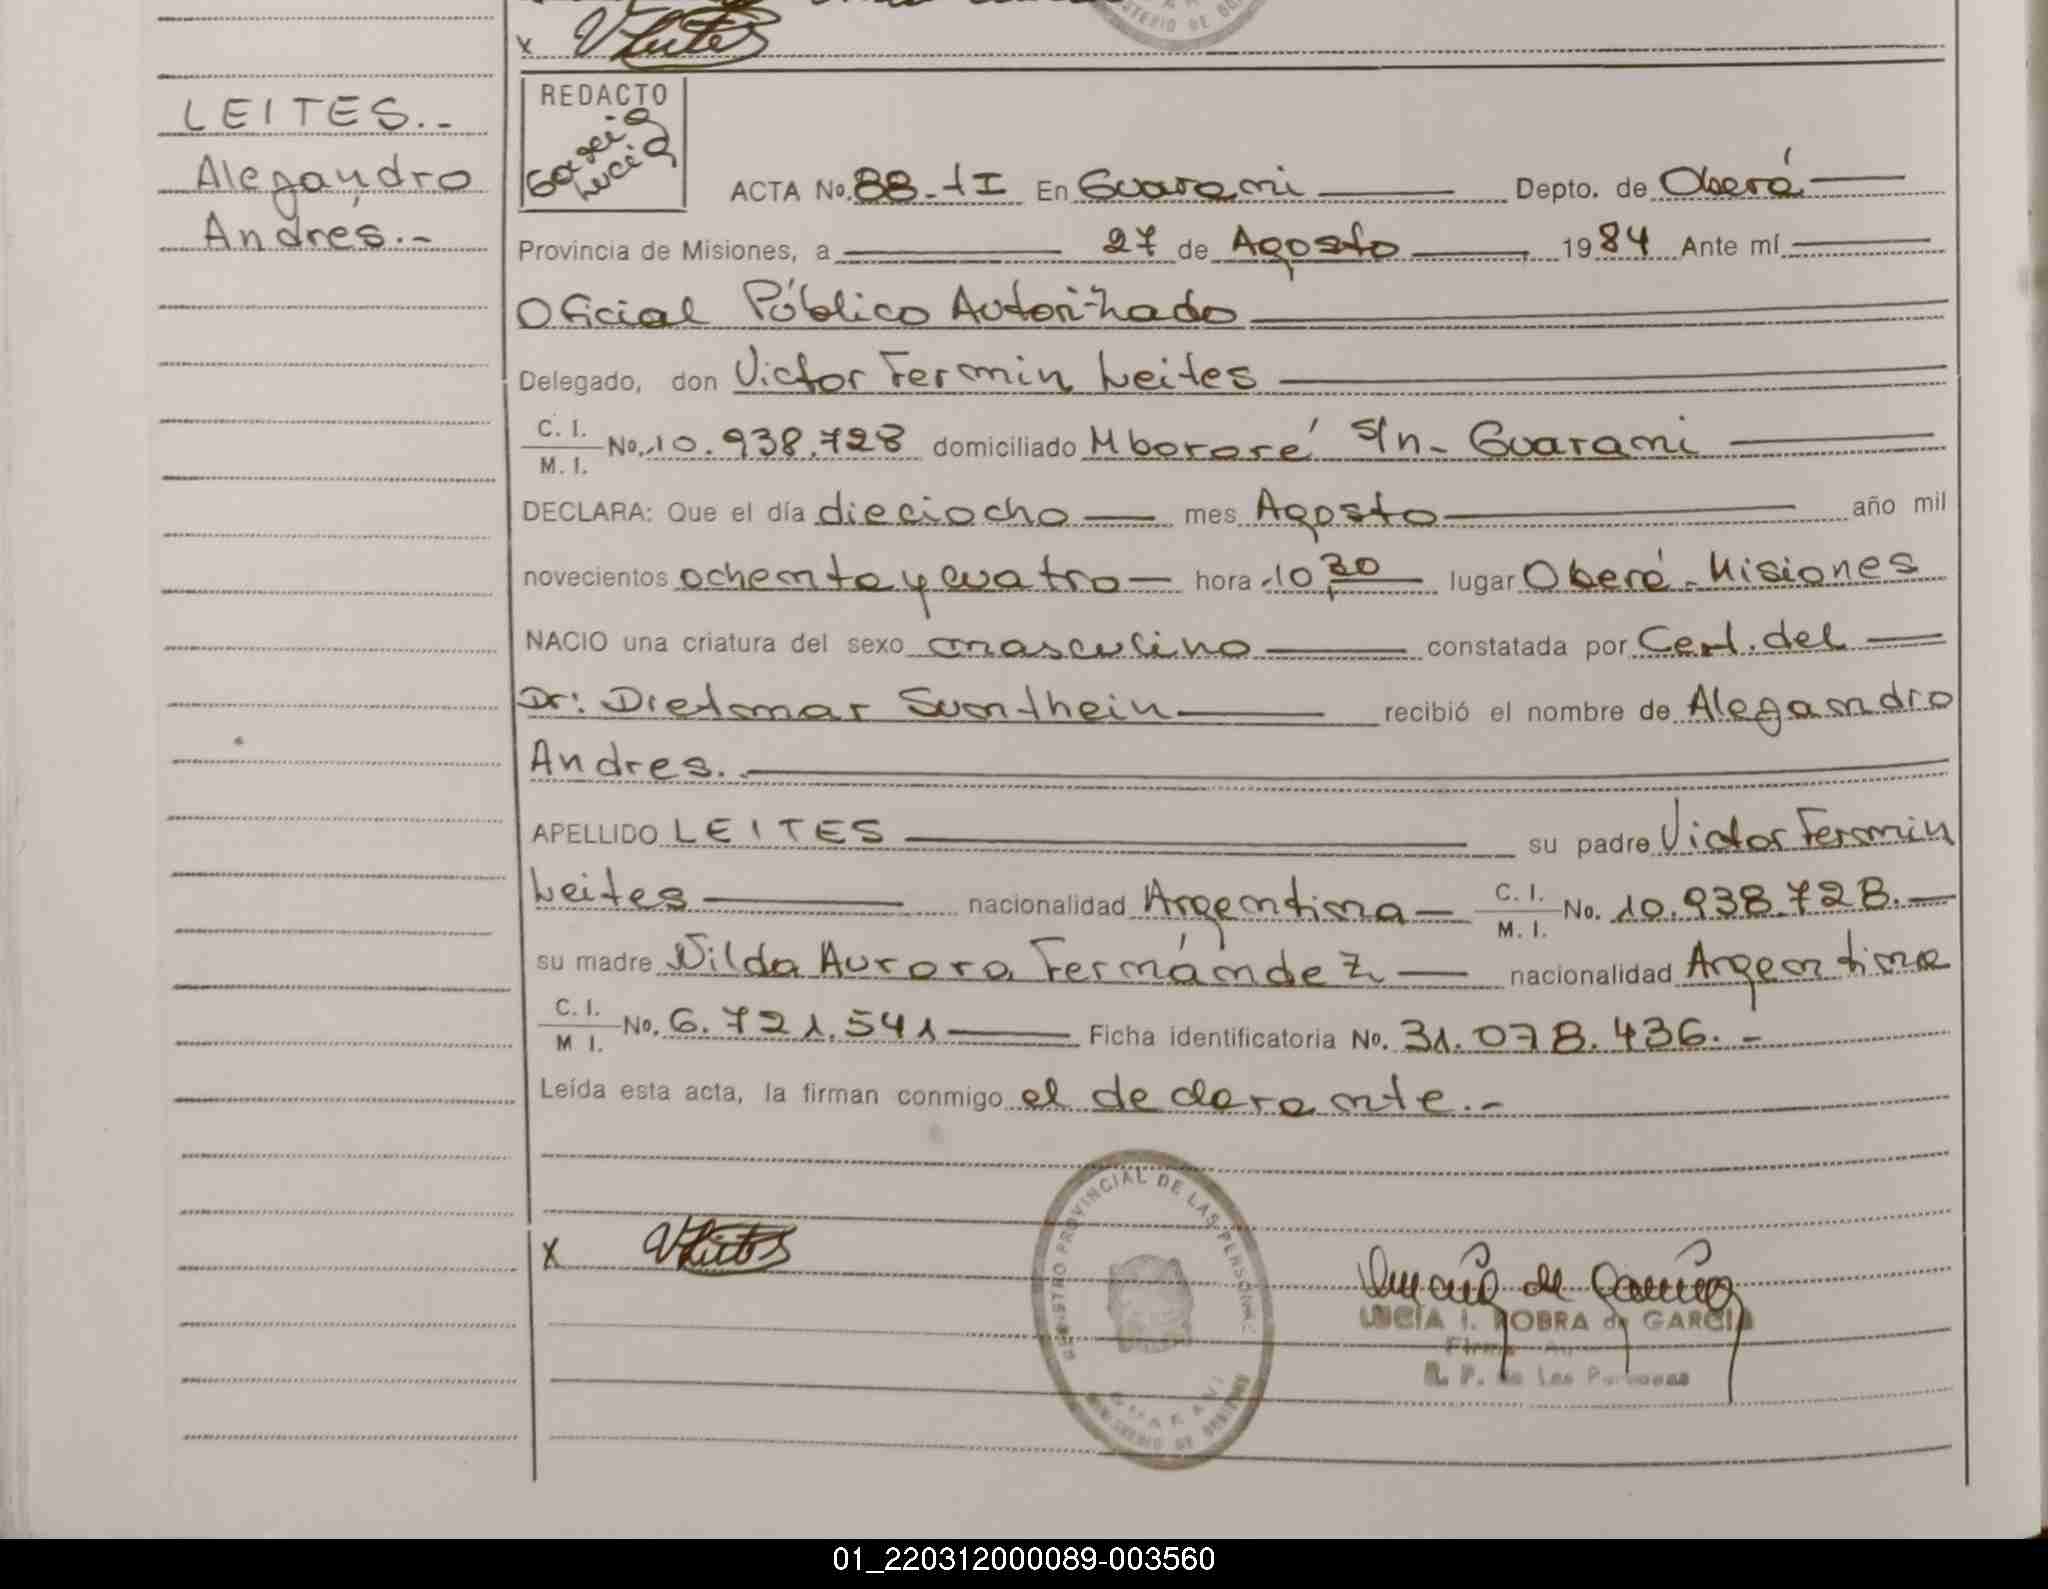 LEITES.-
Alejandro
Andrés.-
REDACTO
Garcia
Lucia
ACTA No. 88-tI En Guarani Depto. de Oberá
Provincia de Misiones, a 27 de Agosto 1984 Ante mí
Oficial Público Autorizado
Delegado, don Victor Fermin Leites
C. I. / M. I. No. 10.938.728 domiciliado Mbororé s/n- Guarani
DECLARA: Que el día dieciocho mes Agosto año mil
novecientos ochenta y cuatro hora 10,30 lugar Oberá-Misiones
NACIO una criatura del sexo masculino constatada por Cert. del
Dr: Dietmar Sunthein recibió el nombre de Alejandro
Andres.-
APELLIDO LEITES su padre Victor Fermin
Leites nacionalidad Argentina C. I. / M. I. No. 10.938.728.-
su madre Nilda Aurora Fernández nacionalidad Argentina
C. I. / M I. No. 6.721.541 Ficha identificatoria No. 31.078.436.-
Leída esta acta, la firman conmigo el declarante.-
REGISTRO PROVINCIAL DE LAS PERSONAS
GUARANI
MINISTERIO DE GOBIERNO
X VLeites
LUCIA I. ROBRA de GARCIA
R. P. de Las Personas
01_220312000089-003560